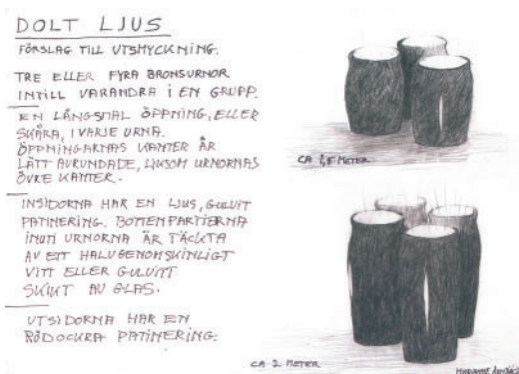 DOLT LJUS
FÖRSLAG TILL UTSMYCKNING.
TRE ELLER FYRA BRONSURNOR
INTILL VARANDRA I EN GRUPP.
EN LÅNGSMAL ÖPPNING, ELLER
SKÅRA, I VARJE URNA.
ÖPPNINGARNAS KANTER ÄR
LÄTT AVRUNDADE, LIKSOM URNORNAS
ÖVRE KANTER.
INSIDORNA HAR EN LJUS, GULVIT
PATINERING. BOTTENPARTIERNA
INUTI URNORNA ÄR TÄCKTA
AV ETT HALVGENOMSKINLIGT
VITT ELLER GULVITT
SKIKT AV GLAS.
UTSIDORNA HAR EN
RÖDOCKRA PATINERING.
CA 1,5 METER
CA 2 METER
MARIANNE